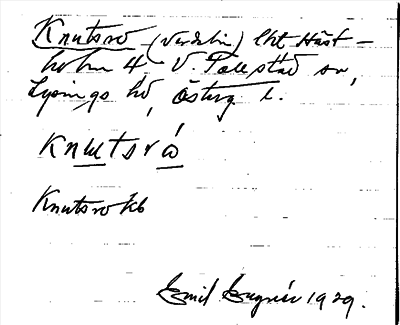 Knutsro (Verdelin) lht Häst-
holm 4, V. Tollstad sn,
Lysings hd, Österg l.
Knutsrò
Knutsro kb
Emil 1929.